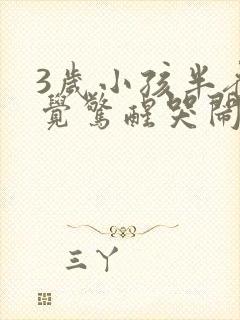 3歲小孩半
覺驚醒哭鬧
三丫